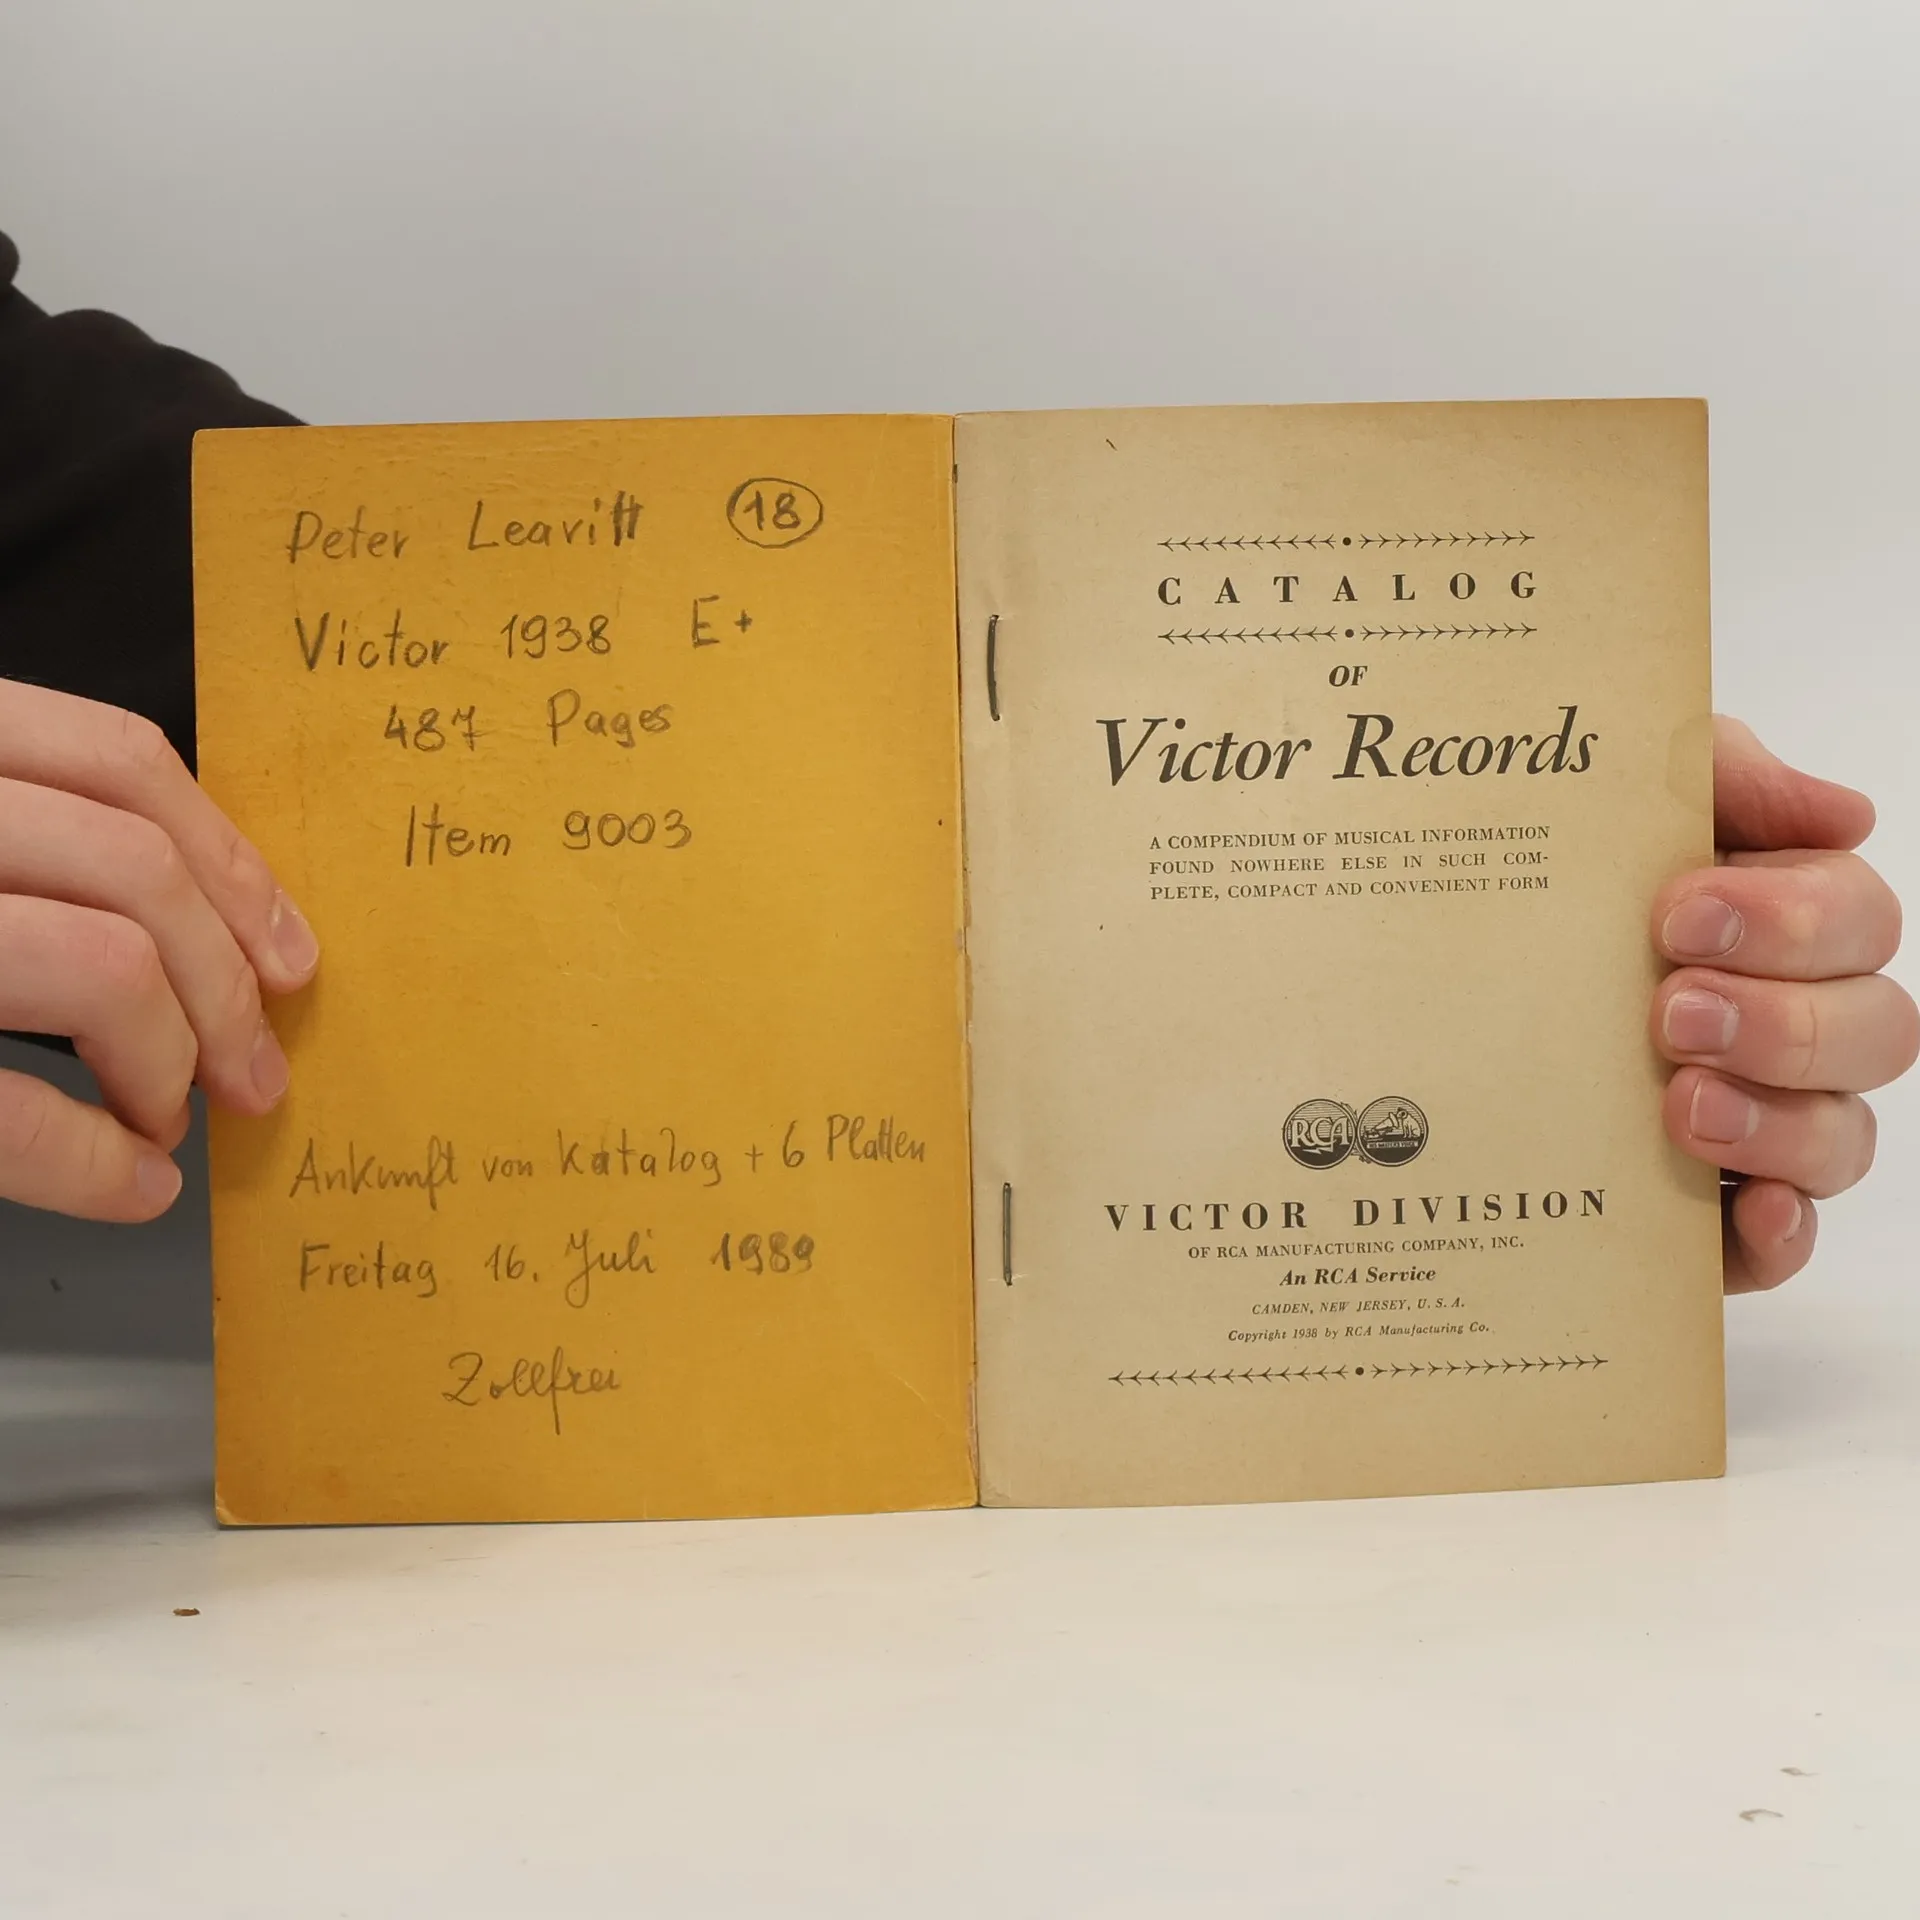 Peter Leavitt 18
Victor 1938 E+
487 Pages
Item 9003
Ankunft von Katalog + 6 Platten
Freitag 16. Juli 1989
Zollfrei
CATALOG
OF
Victor Records
A COMPENDIUM OF MUSICAL INFORMATION
FOUND NOWHERE ELSE IN SUCH COM-
PLETE, COMPACT AND CONVENIENT FORM
RCA
HIS MASTER'S VOICE
VICTOR DIVISION
OF RCA MANUFACTURING COMPANY, INC.
An RCA Service
CAMDEN, NEW JERSEY, U. S. A.
Copyright 1938 by RCA Manufacturing Co.